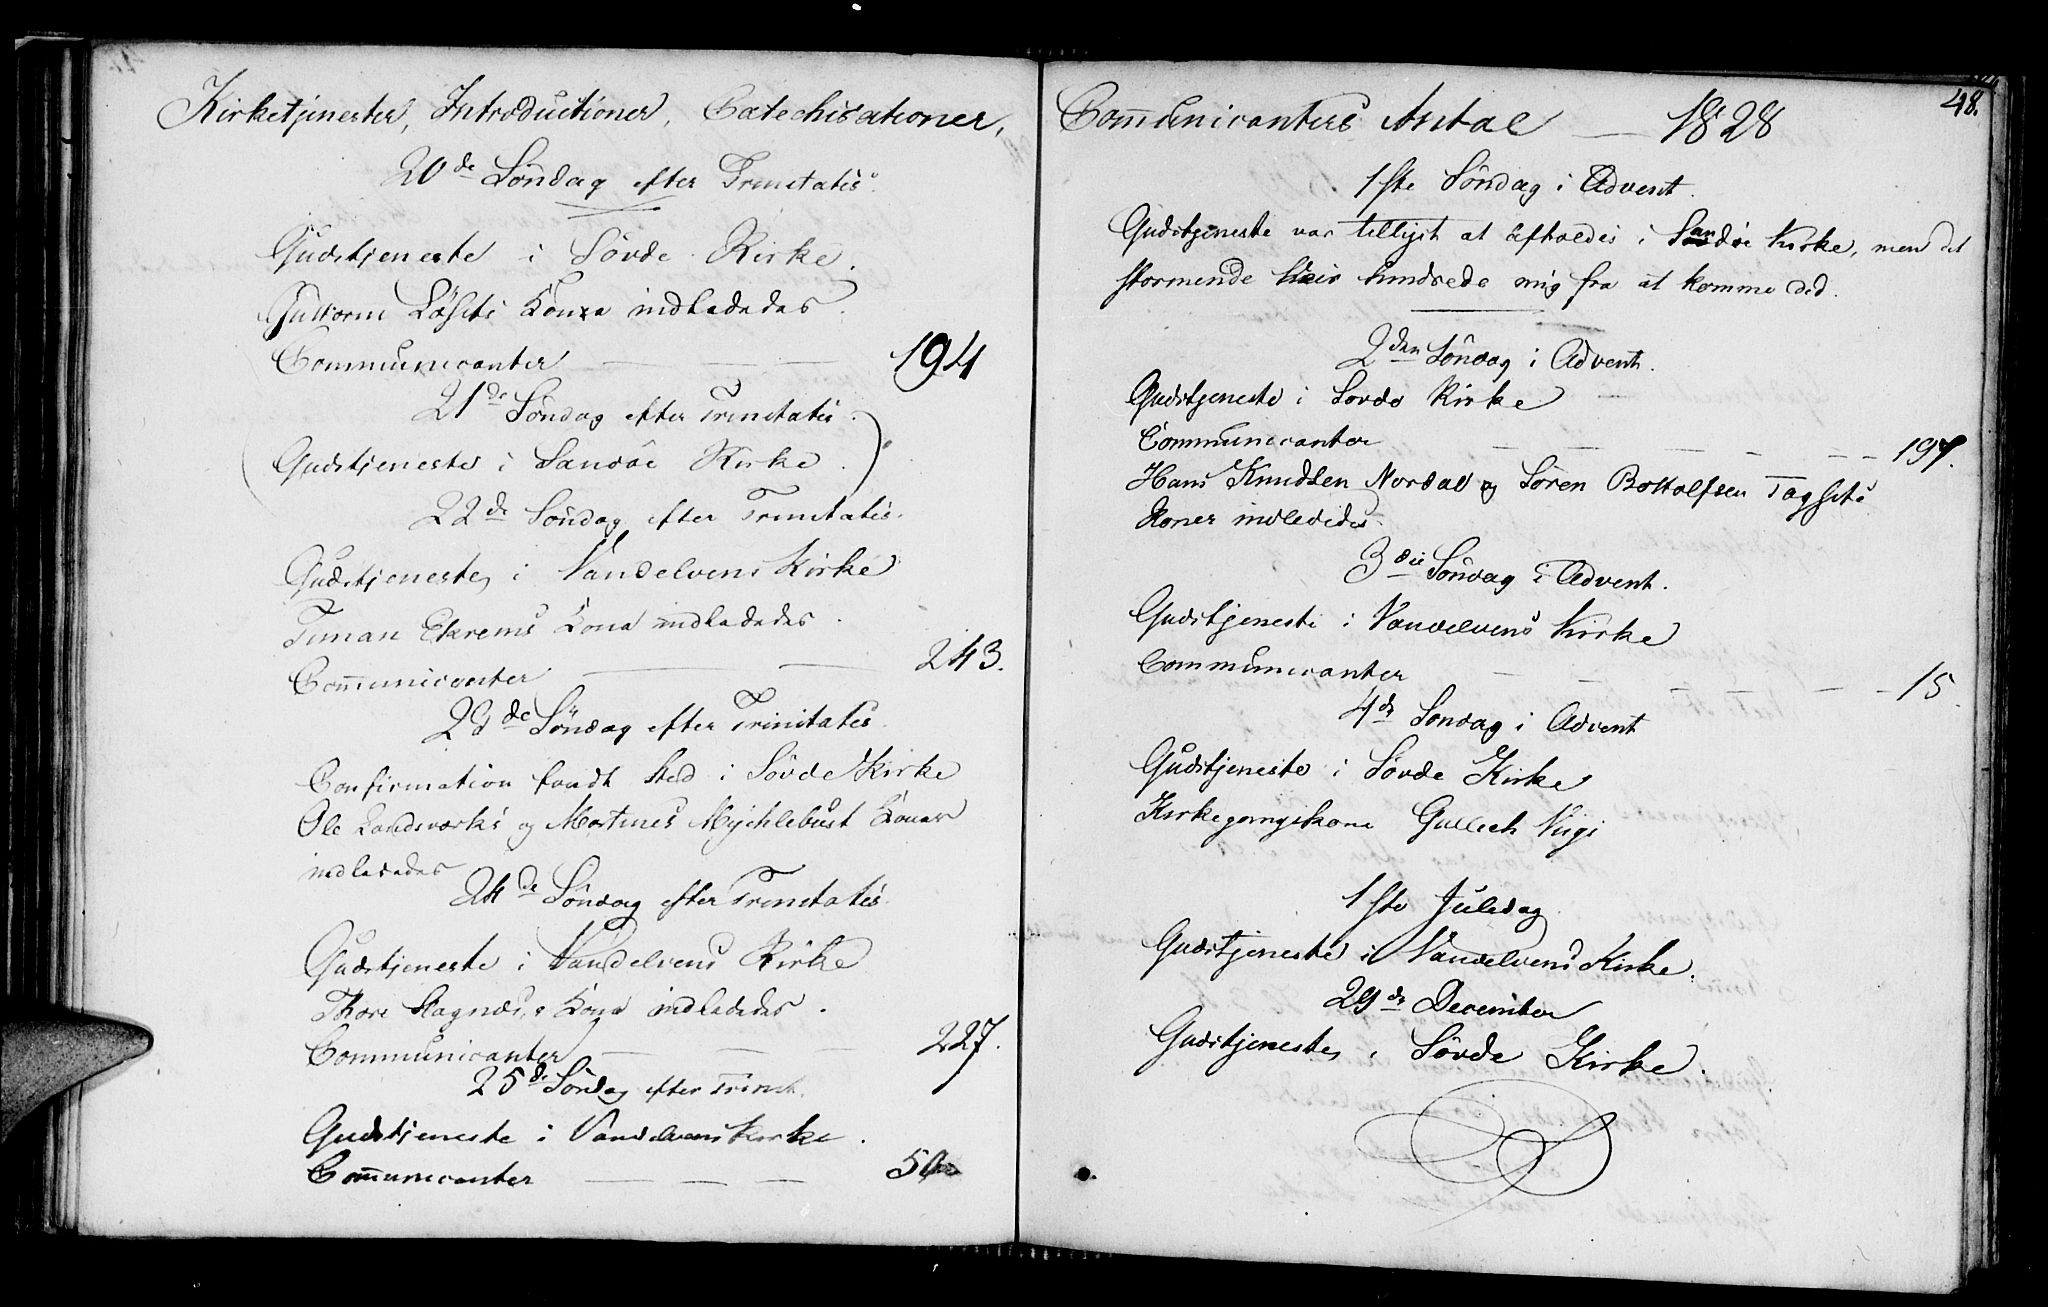 Kirketjenester, Introductioner, Catechisationer,
20de Söndag efter Trinitatis.
Gudstjeneste i Sövde Kirke.
Guttorm Lösets Kone indledades.
Communicanter — — 194
21de Söndag efter Trinitatis.
(Gudstjeneste i Sandöe Kirke.)
22de Söndag efter Trinitatis.
Gudstjeneste i Vandelvens Kirke
Timan Ekrems Kone indledades.
Communicanter — — 243.
23de Söndag efter Trinitatis.
Confirmation fandt Sted i Sövde Kirke
Ole Landsværks og Martines Mychlebust Koner
indledades
24de Söndag efter Trinitatis.
Gudstjeneste i Vandelvens Kirke
Thore Slagnæs's Kone indledades.
Communicanter — — — 227.
25de Söndag efter Trinit.
Gudstjeneste i Vandelvens Kirke.
Communicanter — — — 50
48.
Communicanters Antal — 1828
1ste Söndag i Advent.
Gudstjeneste var tillyst at afholdes i Sandöe Kirke, men det
stormende Veir hindrede mig fra at komme did.
2den Söndag i Advent.
Gudstjeneste i Sövde Kirke
Communicanter — — — — — — 197.
Hans Knudsen Nordal og Sören Bottolfsen Tagsets
Koner indledides.
3die Söndag i Advent.
Gudstjeneste i Vandelvens Kirke
Communicanter — — — — — — 15.
4de Söndag i Advent
Gudstjeneste i Sövde Kirke
Kirkegangskone Gullech Viigs
1ste Juledag
Gudstjeneste i Vandelvens Kirke.
29de December
Gudstjeneste i Sövde Kirke.